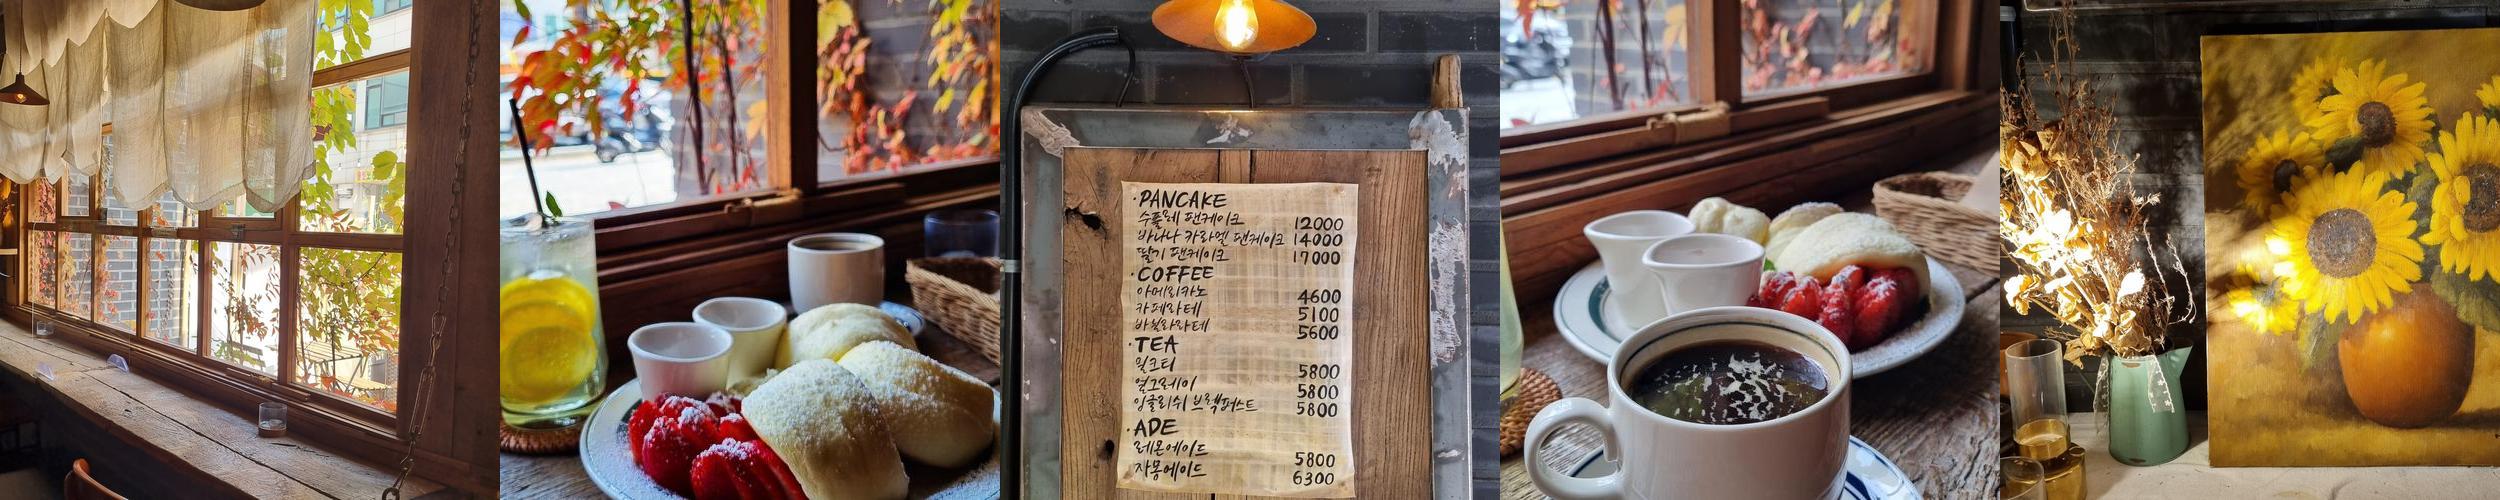 · PANCAKE
수플레 팬케이크 12000
바나나 카라멜 팬케이크 14000
딸기 팬케이크 17000
· COFFEE
아메리카노 4600
카페라떼 5100
바닐라라떼 5600
· TEA
밀크티 5800
얼그레이 5800
잉글리쉬 브렉퍼스트 5800
· ADE
레몬에이드 5800
자몽에이드 6300